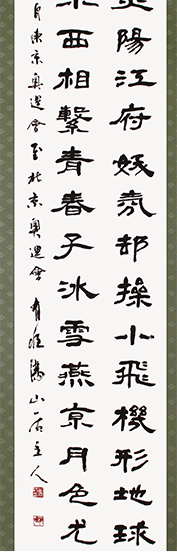 陽江府妖氛却操小飛機形地球
西相繫青春子冰雪燕京月色尤
自東京奧運會至北京奧運會山一石主人